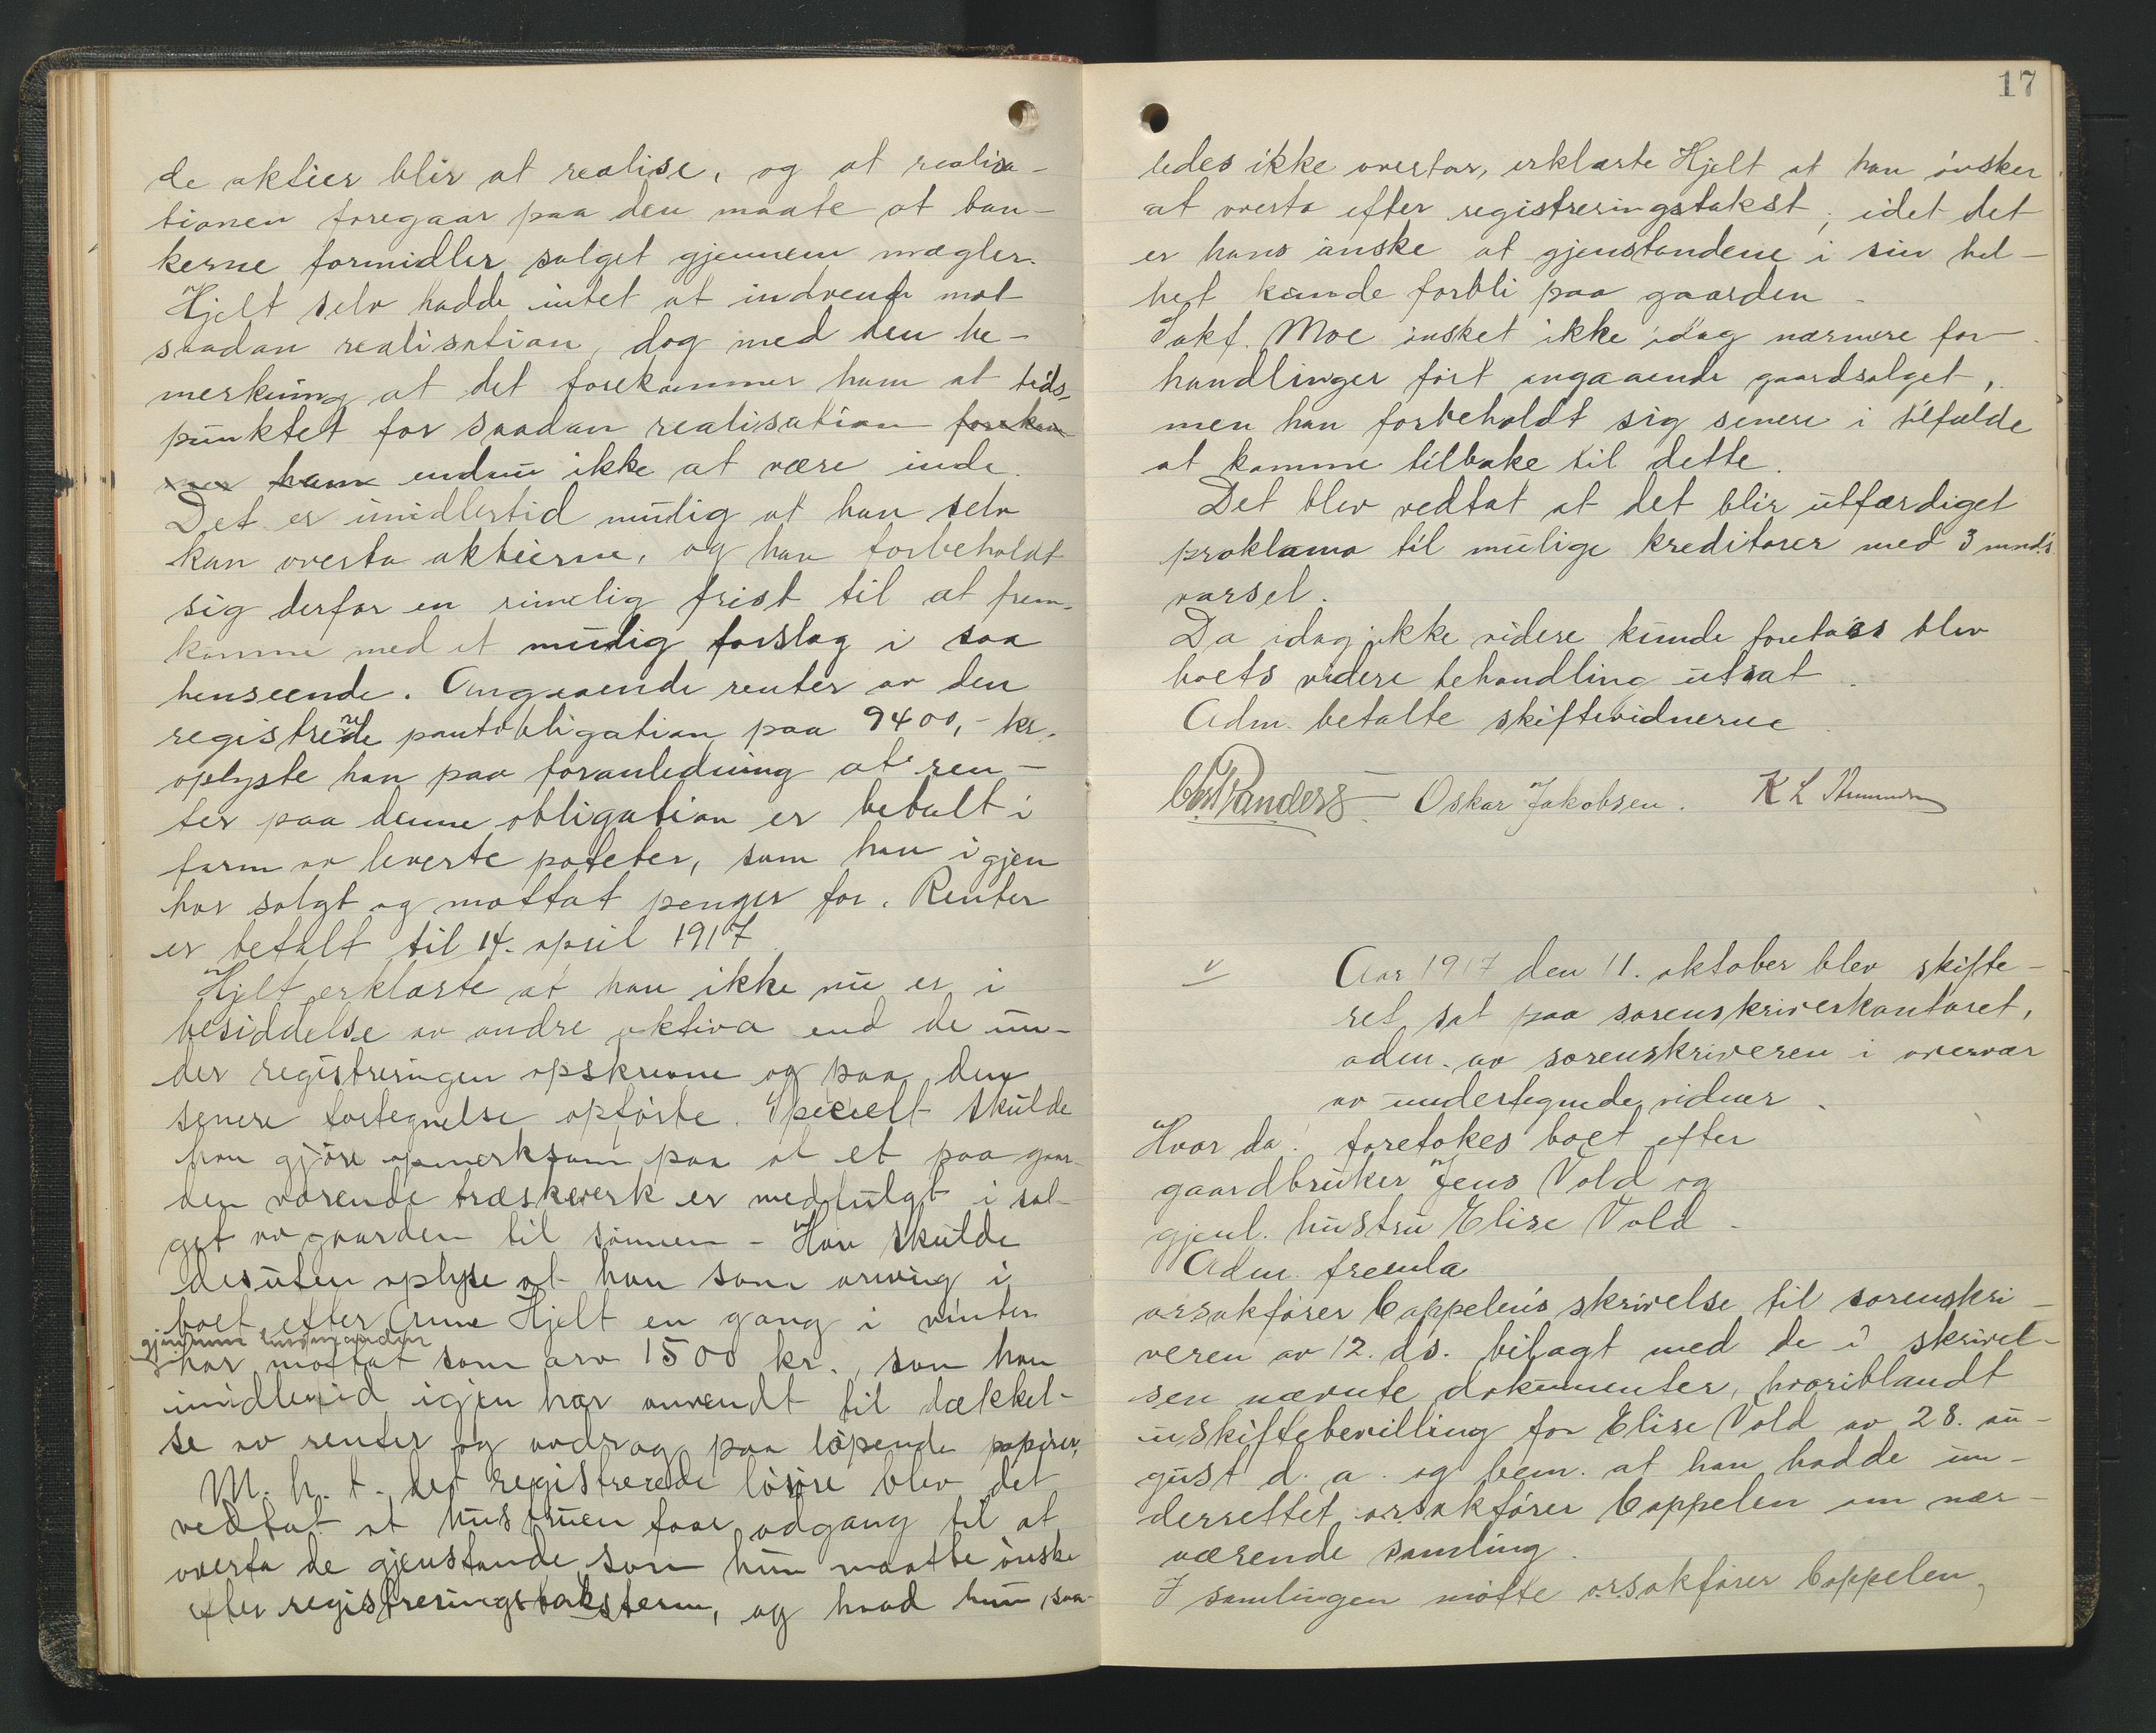 de aktier blir at realise, og at realisa-
tionen foregaar paa den maate at ban-
kerne formidler salget gjennem mægler.
Hjelt selv hadde intet at indvende mot
saadan realisation, dog med den be-
merkning at det forekommer ham at tids-
punktet for saadan realisation forekom
mer ham endnu ikke at være inde.
Det er imidlertid mulig at han selv
kan overta aktierne, og han forbeholdt
sig derfor en rimelig frist til at frem-
komme med et mulig forslag i saa
henseende. Angaaende renter av den
registrerede pantobligation paa 9400,- kr.
oplyste han paa foranledning at ren-
ter paa denne obligation er betalt i
form av leverte poteter, som han igjen
har solgt og mottat penger for. Renter
er betalt til 14. april 1917
Hjelt erklærte at han ikke nu er i
besiddelse av andre aktiva end de un-
der registreringen opskrevne og paa den
senere fortegnelse opførte. Specielt skulde
han gjøre opmerksom paa at et paa gaar-
den værende træskeverk er medfulgt i sal-
get av gaarden til sønnen - Han skulde
desuten oplyse at han som arving i
boet efter Anne Hjelt en gang i vinter
gjennem lensmanden
har mottat som arv 1500 kr., som han
imidlertid igjen har anvendt til dækkel-
se av renter og avdrag paa løpende papirer.
M. h. t. det registrerede løsøre blev det
vedtat at hustruen faar adgang til at
overta de gjenstande som hun maatte ønske
efter registreringstaksterne, og hvad hun saa-
17
ledes ikke overtar, erklærte Hjelt at han ønsker
at overta efter registreringstakst, idet det
er hans ønske at gjenstandene i sin hel-
het kunde forbli paa gaarden -
Sakf. Moe ønsket ikke idag nærmere for-
handlinger ført angaaende gaardsalget,
men han forbeholdt sig senere i tilfælde
at komme tilbake til dette.
Det blev vedtat at det blir utfærdiget
proklama til mulige kreditorer med 3 mnd's
varsel.
Da idag ikke videre kunde foretaes blev
boets videre behandling utsat.
Adm. betalte skiftevidnerne.
Randers Oskar Jakobsen. K L Amundsen
v
Aar 1917 den 11. oktober blev skifte-
ret sat paa sorenskriverkontoret,
adm. av sorenskriveren i overvær
av undertegnede vidner.
Hvor da: foretokes boet efter
gaardbruker Jens Vold og
gjenl. hustru Elise Vold -
Adm. fremla
orsakfører Cappelen's skrivelse til sorenskri-
veren av 12. ds. bilagt med de i skrivel-
sen nævnte dokumenter, hvoriblandt
uskiftebevilling for Elise Vold av 28. au-
gust d. a. og bem. at han hadde un-
derrettet orsakfører Cappelen om nær-
værende samling.
I samlingen møtte orsakfører Cappelen,